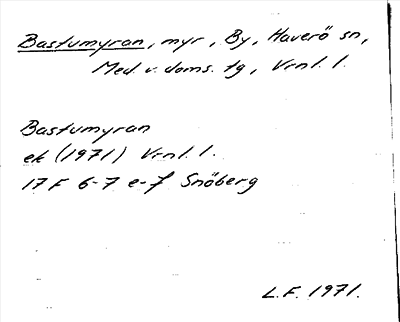 Bastumyran, myr, By, Haverö sn,
Med. v. doms. tg, Vrnl. l.
Bastumyran
ek (1971) Vrnl. l.
17 F 6-7 e-f Snöberg
L.F. 1971.